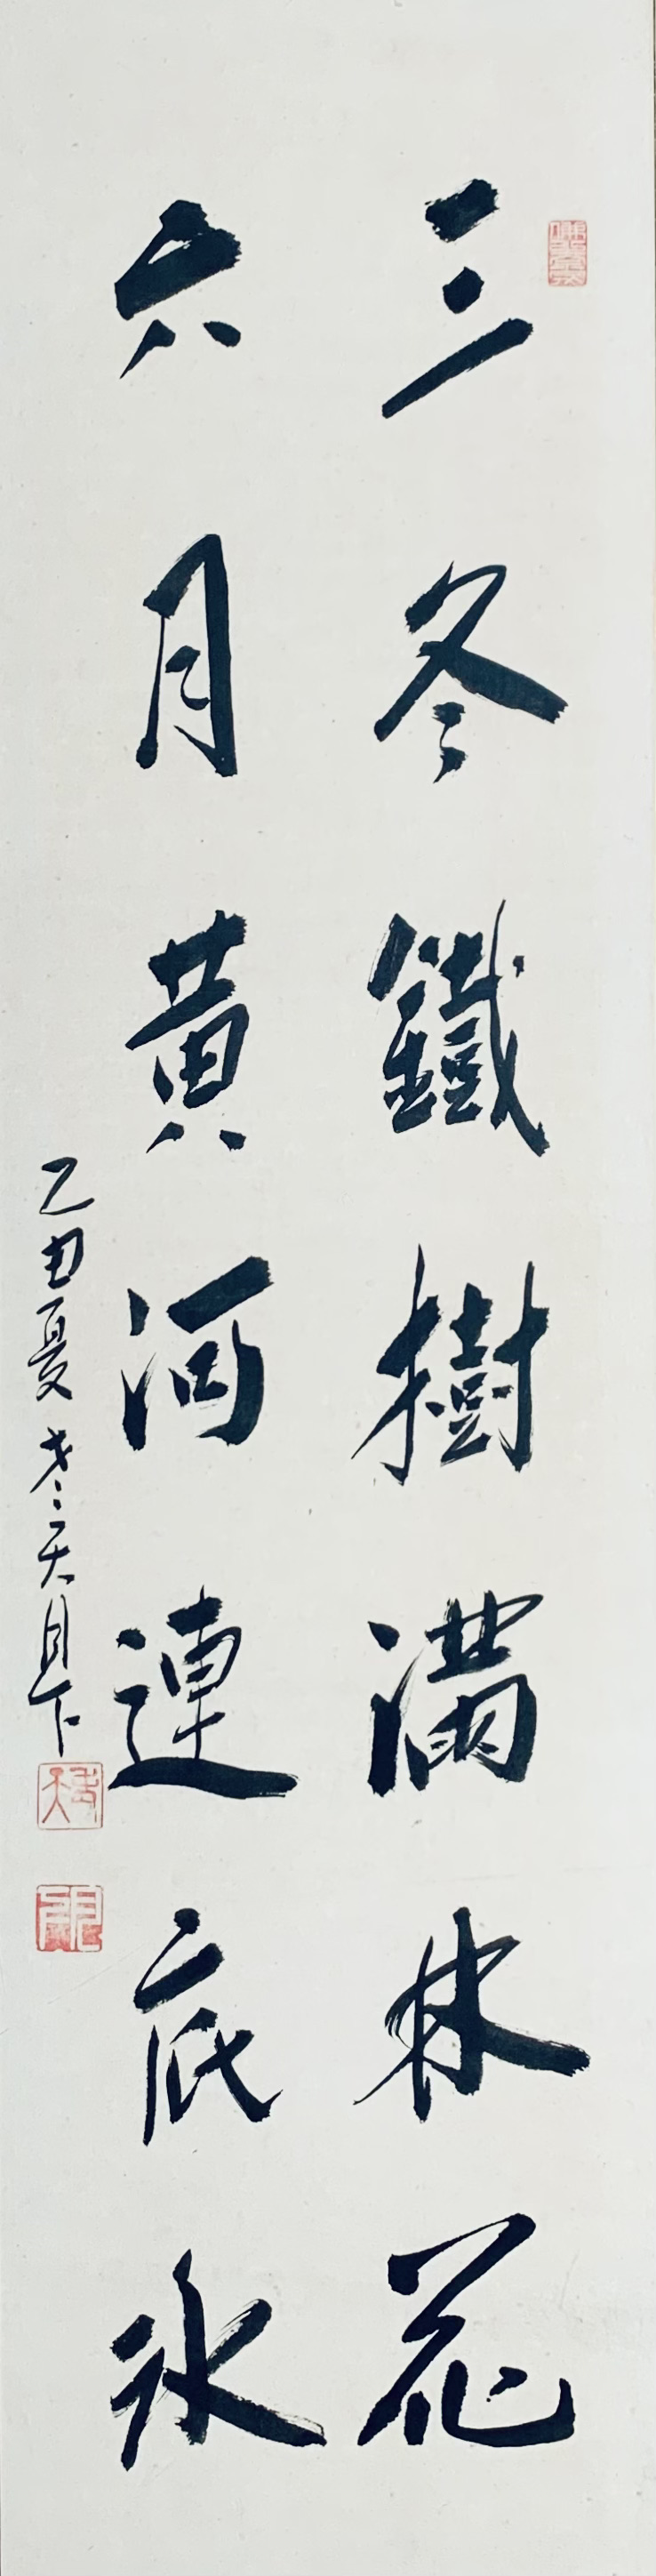 三冬鐵樹滿林花
六月黃河連底冰
乙丑夏
天目下